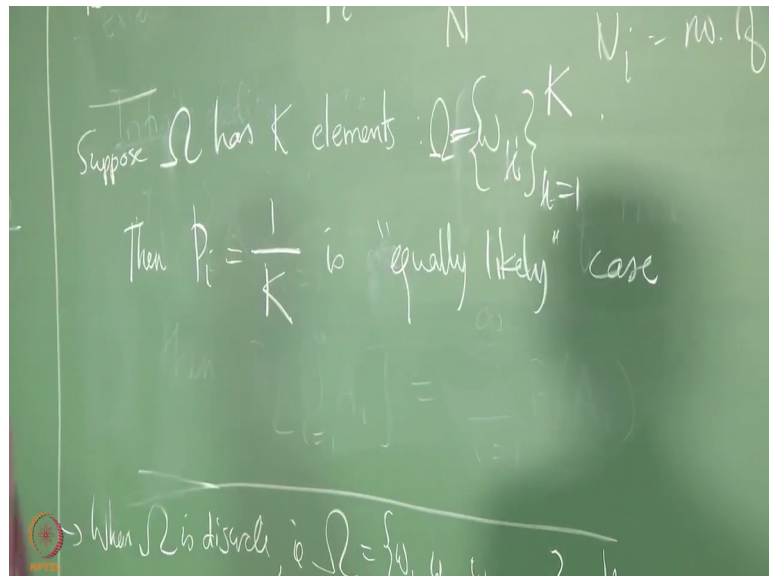 N
N_i = no. of
Suppose Ω has K elements : Ω = {ω_k}_{k=1}^K
Then P_i = 1/K is "equally likely" case
When Ω is discrete, ie Ω = {ω,
NPTEL